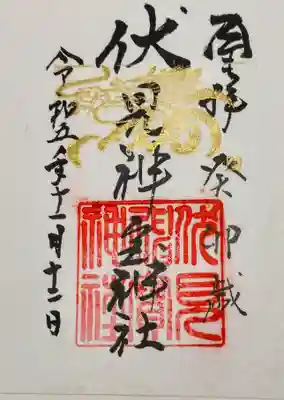 奉拝 癸卯歳
伏見神宝神社
令和五年十一月十二日
伏見神寶神社